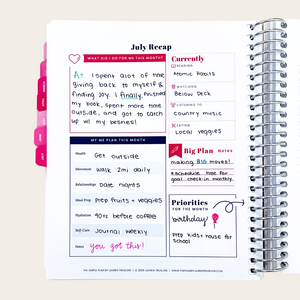 July Recap
WHAT DID I DO FOR ME THIS MONTH?
A+ I spent alot of time
giving back to myself &
finding joy. I finally finished
my book, spent more time
outside, and got to catch
up w/ my besties!
MY ME PLAN THIS MONTH
Health Get outside
Movement Walk 2mi daily
Relationships Date nights
Meal Prep Prep fruits + veggies
Hydration 40oz before coffee
Self-Care Journal weekly
Notes you got this!
Currently
READING
Atomic Habits
WATCHING
Below Deck
LISTENING TO
Country music
EATING
Local veggies
Big Plan Notes
making BIG moves!
*schedule time for
goal check-in monthly.
Priorities
FOR THE MONTH
birthday!
Prep kids + house for
school
JUL